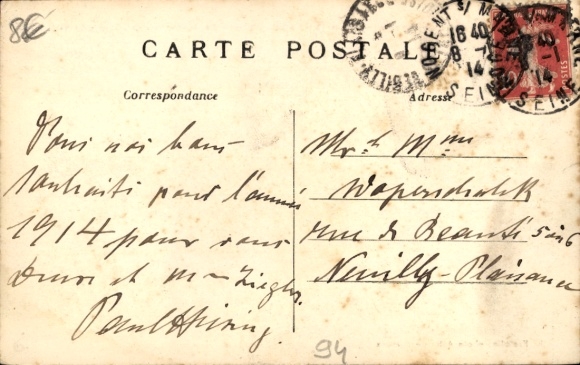 8€
CARTE POSTALE
NOGENT S/ MARNE
16 40
8 - 1
14
SEINE
POSTES
Correspondance
Adresse
Tous nos bons
souhaits pour l'année
1914 pour vous
deux et Mme Ziegler
Paul
Mr et Mme
rue de Beauté 5
Neuilly-Plaisance
94